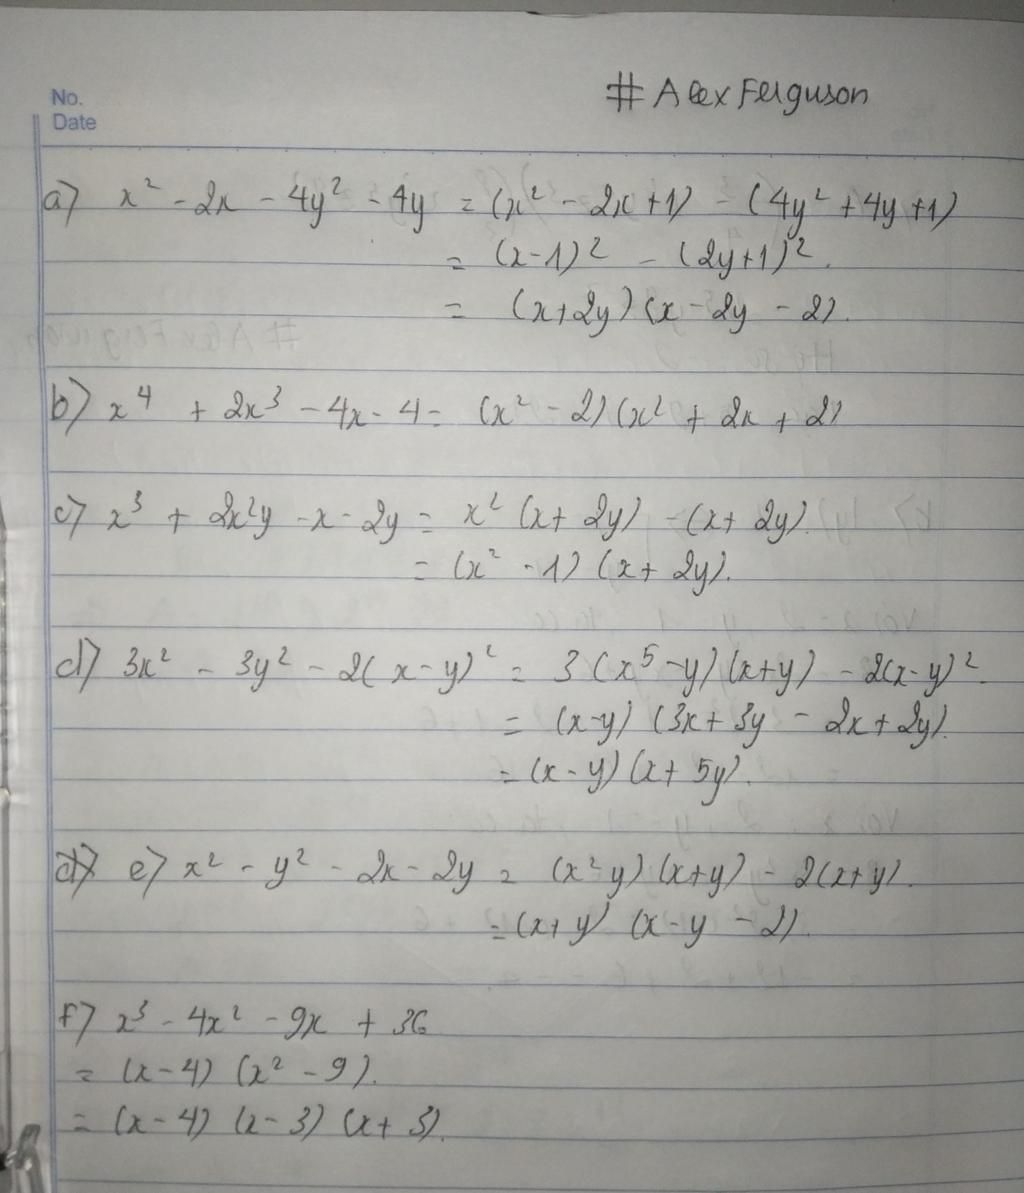 # Alex Ferguson
No.
Date
a) x² - 2x - 4y² - 4y = (x² - 2x + 1) - (4y² + 4y + 1)
= (x - 1)² - (2y + 1)².
= (x + 2y) (x - 2y - 2).
b) x⁴ + 2x³ - 4x - 4 = (x² - 2) (x² + 2x + 2)
c) x³ + 2x²y - x - 2y = x² (x + 2y) - (x + 2y).
= (x² - 1) (x + 2y).
d) 3x² - 3y² - 2(x - y)² = 3 (x⁵ - y) (x + y) - 2(x - y)².
= (x - y) (3x + 3y - 2x + 2y).
= (x - y) (x + 5y).
e) x² - y² - 2x - 2y = (x² y) (x + y) - 2(x + y).
= (x + y) (x - y - 2).
f) x³ - 4x² - 9x + 36
= (x - 4) (x² - 9).
= (x - 4) (x - 3) (x + 3).